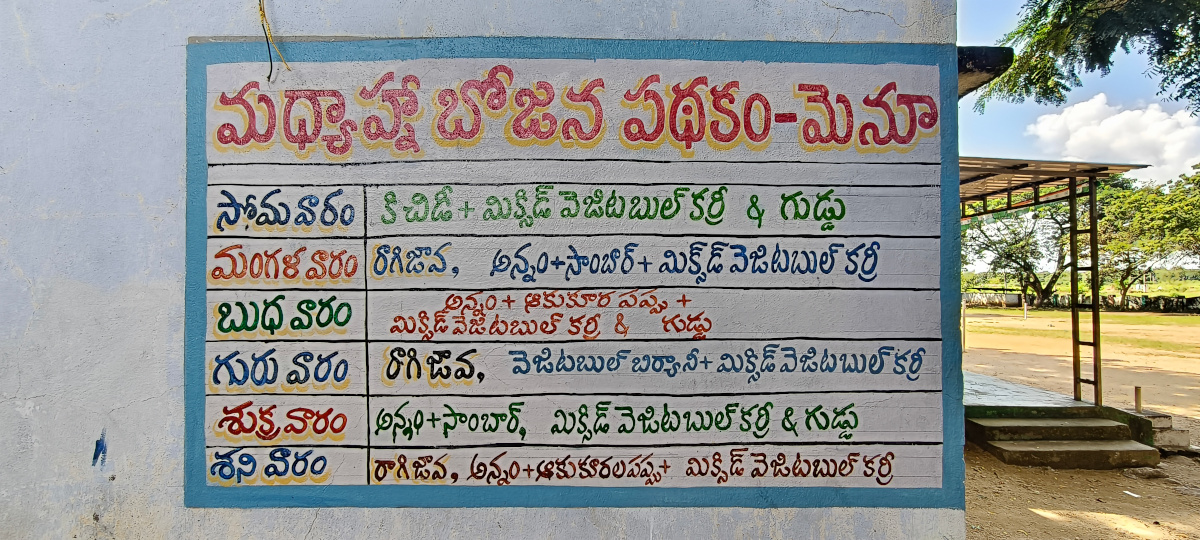 మధ్యాహ్న బోజన పథకం-మెనూ
సోమవారం కిచిడీ + మిక్సిడ్ వెజిటబుల్ కర్రీ & గుడ్డు
మంగళవారం రాగిజావ, అన్నం+సాంబార్+ మిక్స్‌డ్ వెజిటబుల్ కర్రీ
బుధవారం అన్నం + ఆకుకూర పప్పు +
మిక్సిడ్ వెజిటబుల్ కర్రీ & గుడ్డు
గురువారం రాగిజావ, వెజిటబుల్ బిర్యానీ+ మిక్సిడ్ వెజిటబుల్ కర్రీ
శుక్రవారం అన్నం+సాంబార్, మిక్సిడ్ వెజిటబుల్ కర్రీ & గుడ్డు
శనివారం రాగిజావ, అన్నం+ఆకుకూరలపప్పు+ మిక్సిడ్ వెజిటబుల్ కర్రీ